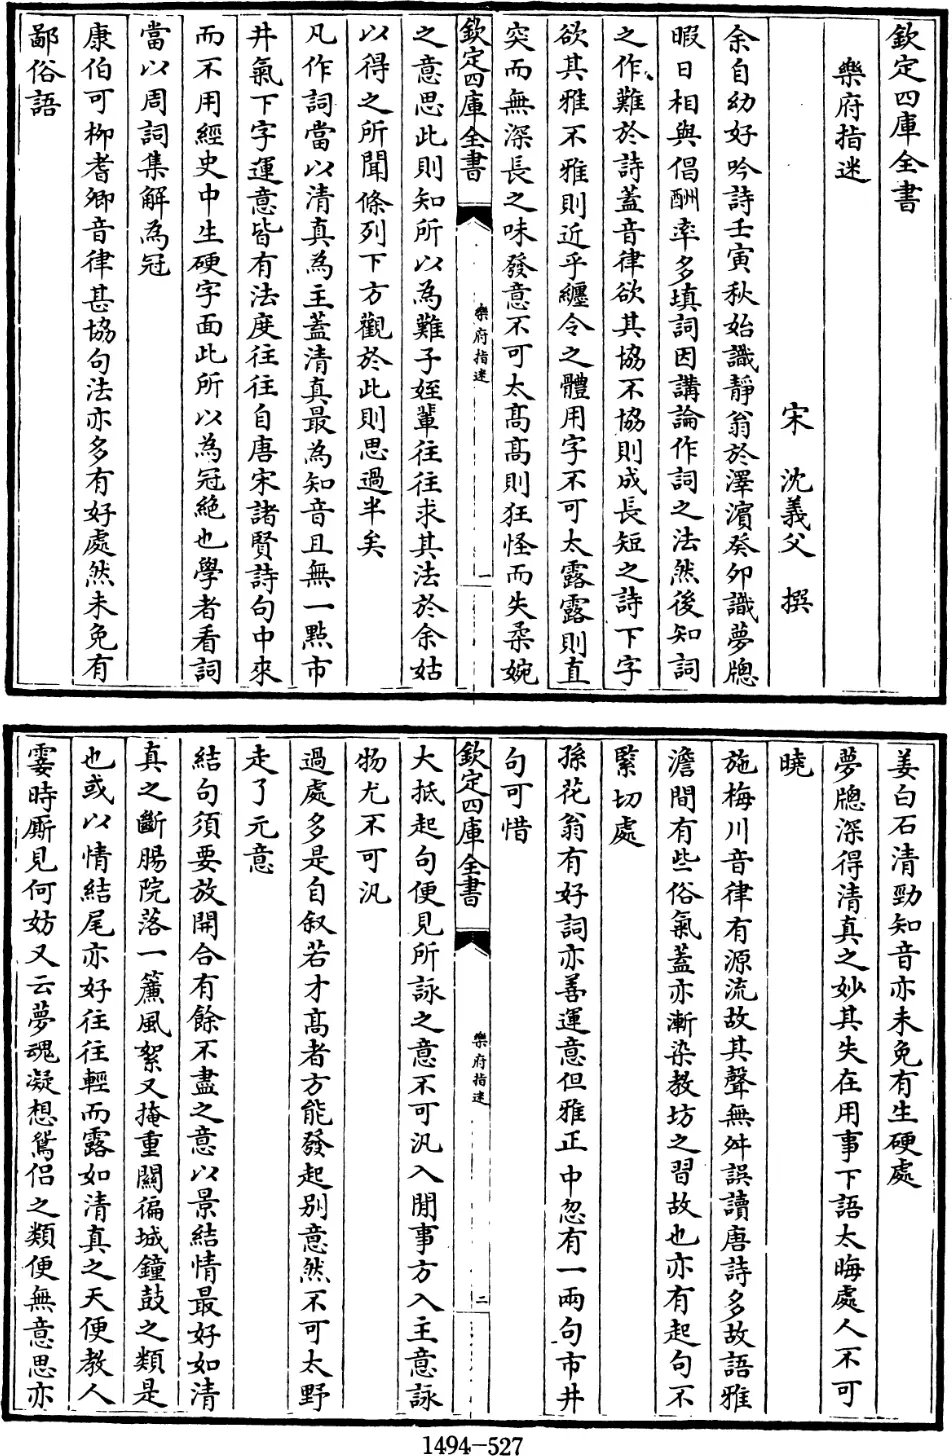 欽定四庫全書
樂府指迷
宋 沈義父 撰
余自幼好吟詩壬寅秋始識靜翁於澤濵癸夘識夢牕
暇日相與倡酬率多填詞因講論作詞之法然後知詞
之作難於詩蓋音律欲其協不協則成長短之詩下字
欲其雅不雅則近乎纒令之體用字不可太露露則直
突而無深長之味發意不可太髙髙則狂怪而失柔婉
欽定四庫全書
樂府指迷
一
之意思此則知所以為難子姪輩往往求其法於余姑
以得之所聞條列下方觀於此則思過半矣
凡作詞當以清真為主蓋清真最為知音且無一點市
井氣下字運意皆有法度往往自唐宋諸賢詩句中來
而不用經史中生硬字面此所以為冠絶也學者看詞
當以周詞集解為冠
康伯可栁耆卿音律甚協句法亦多有好處然未免有
鄙俗語
姜白石清勁知音亦未免有生硬處
夢牕深得清真之妙其失在用事下語太晦處人不可
曉
施梅川音律有源流故其聲無舛誤讀唐詩多故語雅
澹間有些俗氣蓋亦漸染教坊之習故也亦有起句不
緊切處
孫花翁有好詞亦善運意但雅正中忽有一兩句市井
句可惜
欽定四庫全書
樂府指迷
二
大抵起句便見所詠之意不可汎入閒事方入主意詠
物尤不可汎
過處多是自叙若才髙者方能發起别意然不可太野
走了元意
結句須要放開合有餘不盡之意以景結情最好如清
真之斷腸院落一簾風絮又掩重關徧城鐘鼓之類是
也或以情結尾亦好往往輕而露如清真之天便教人
霎時厮見何妨又云夢魂凝想鴛侣之類便無意思亦
1494-527